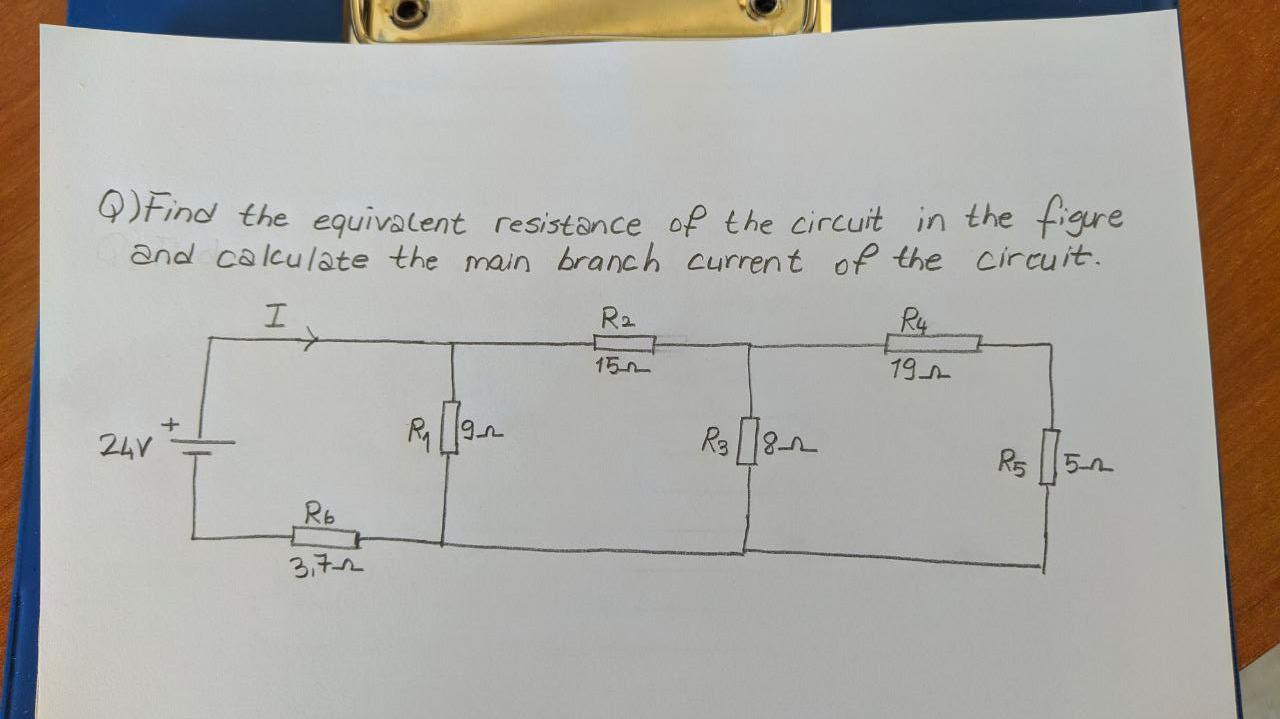 Q) Find the equivalent resistance of the circuit in the figure
and calculate the main branch current of the circuit.
I
R2
R4
15Ω
19Ω
24V
+
R1
9Ω
R3
8Ω
R5
5Ω
R6
3,7Ω